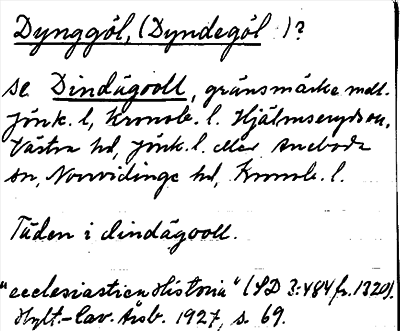 Dynggöl, (Dyndegöl )?
se Dindägooll, gränsmärke mell.
Jönk. l, Kronob. l. Hjälmseryds sn,
Västra hd, Jönk. l. eller Aneboda
sn, Norrvidinge hd, Kronob. l.
Tüden i dindägooll.
"ecclesiastica Historia" (SD 3:484 fr. 1320).
Hylt.-Cav. Årsb. 1927, s. 69.